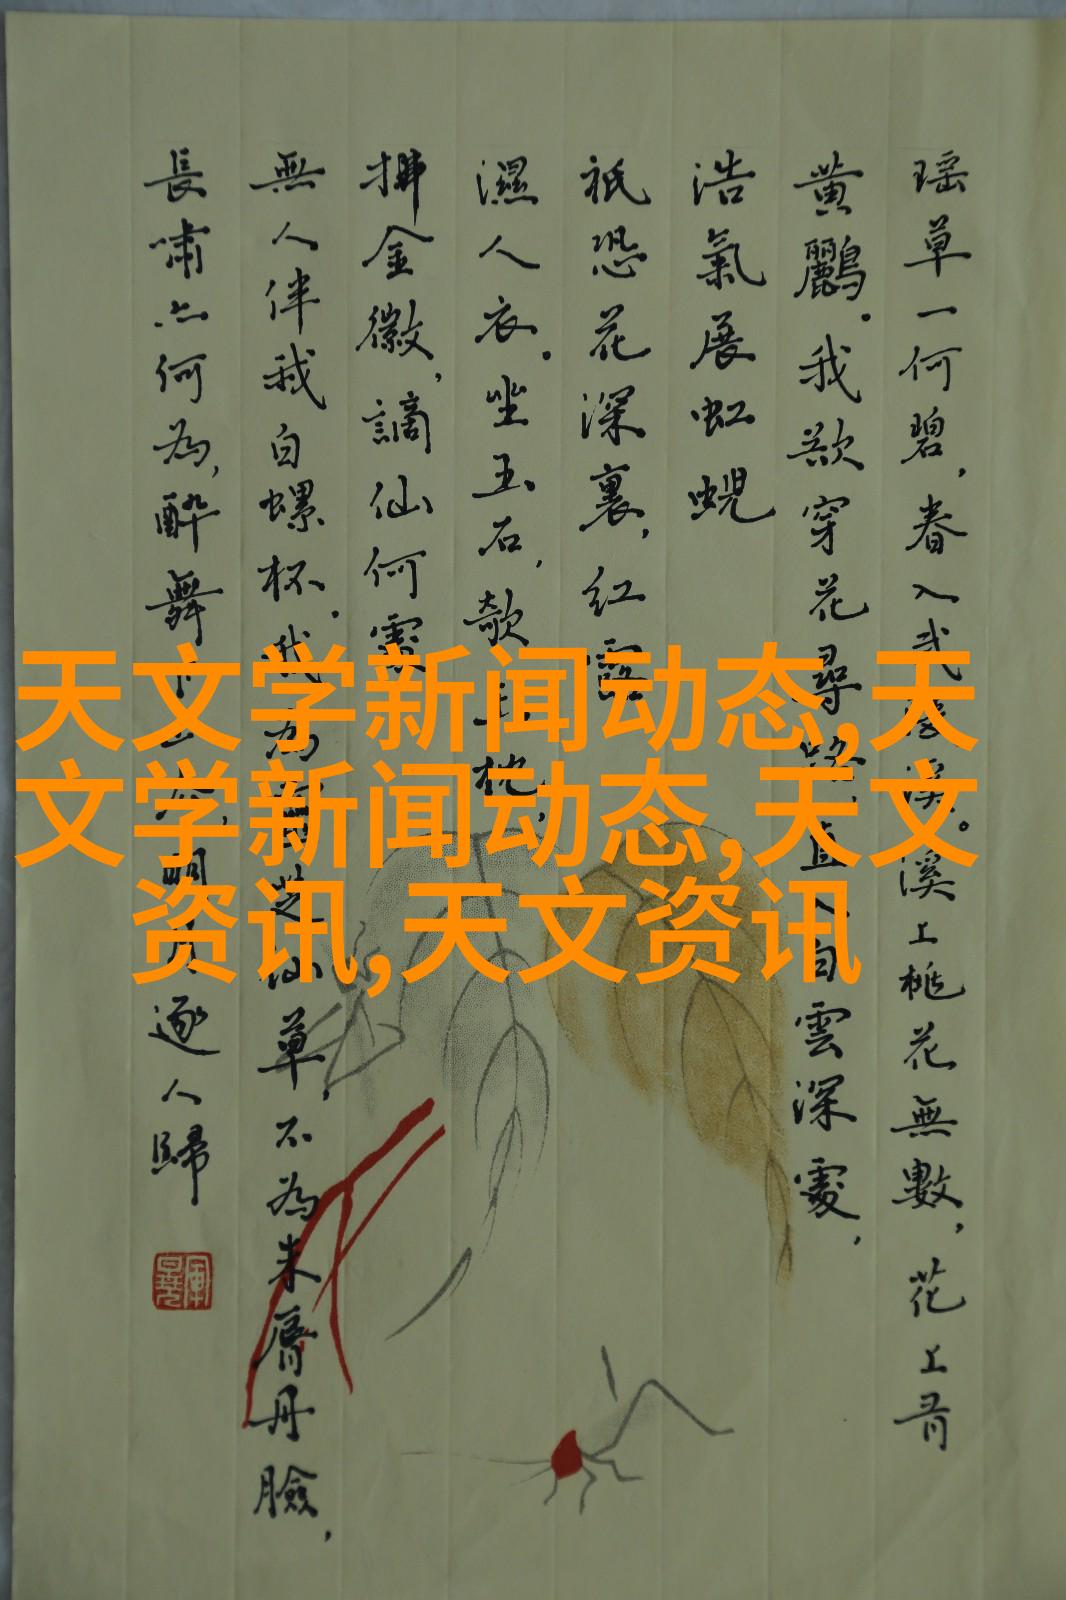 瑶草一何碧，春入武陵溪。溪上桃花無數，花上有
黄鸝。我欲穿花尋路，直入白雲深處，
浩氣展虹蜺
祇恐花深裏，紅露
濕人衣。坐玉石，欹玉枕，
拂金徽，謫仙何處
無人伴我白螺杯。我為芝仙草，不為朱脣丹臉，
長嘯亦何為，醉舞下山去，明月逐人歸
天文学新闻动态,天
文学新闻动态,天文
资讯,天文资讯